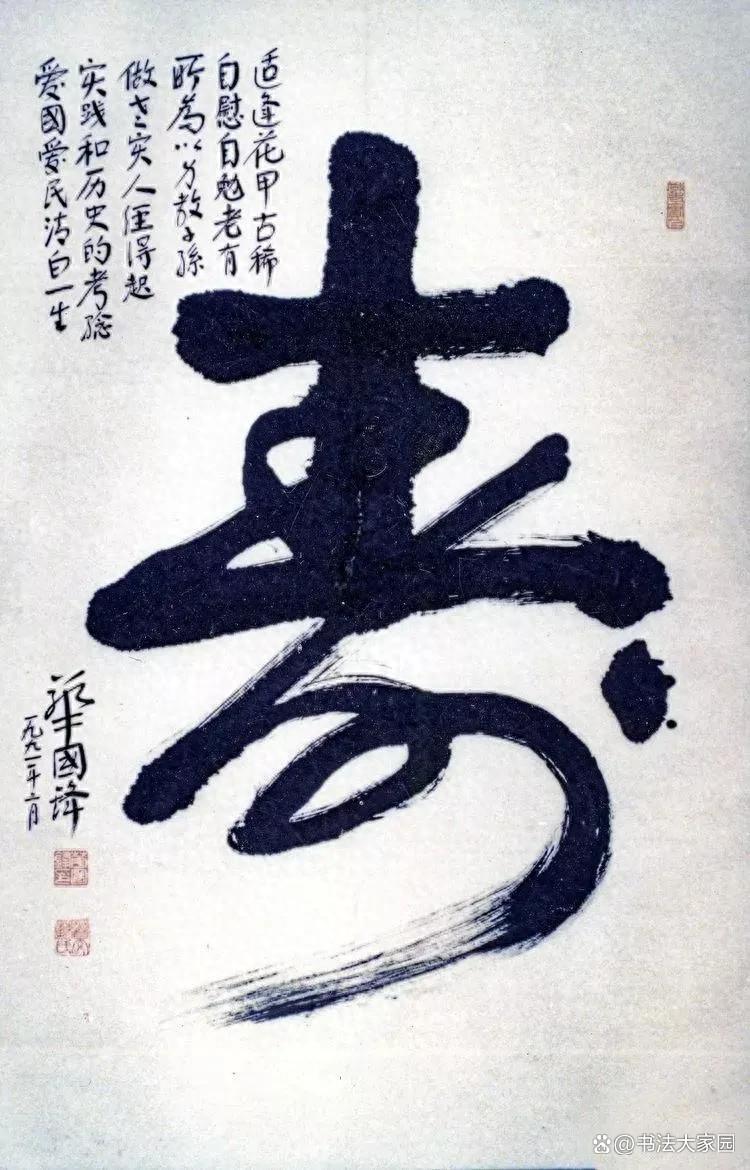 寿
适逢花甲古稀
自慰自勉老有
所為以方教子孫
做老实人經得起
实践和历史的考验
愛國愛民清白一生
華國鋒
一九九一年二月
@书法大家园